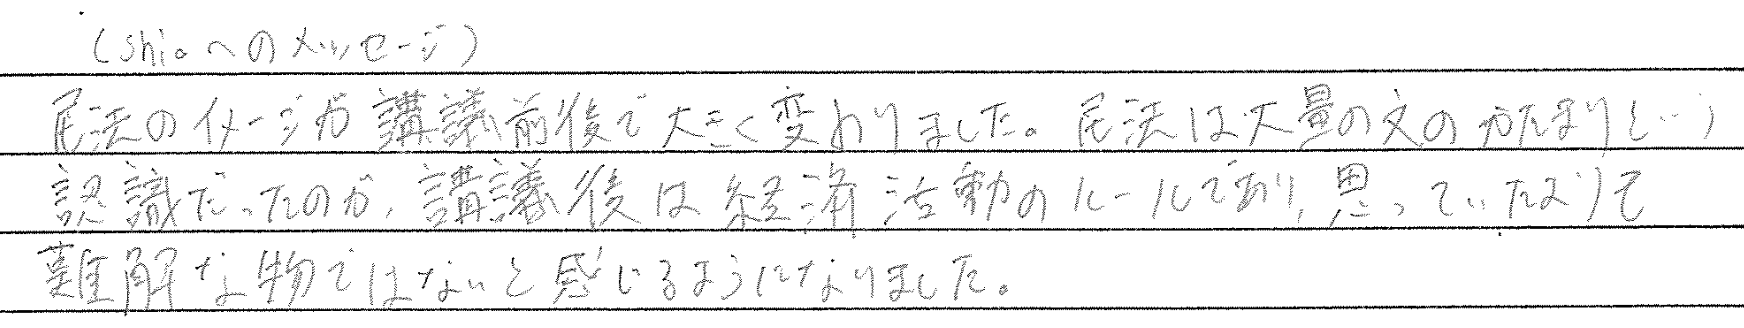 (shioへのメッセージ)
民法のイメージが講議前後で大きく変わりました。民法は大量の文のかたまりという
認識だったのが、講議後は経済活動のルールであり、思っていたよりも
難解な物ではないと感じるようになりました。